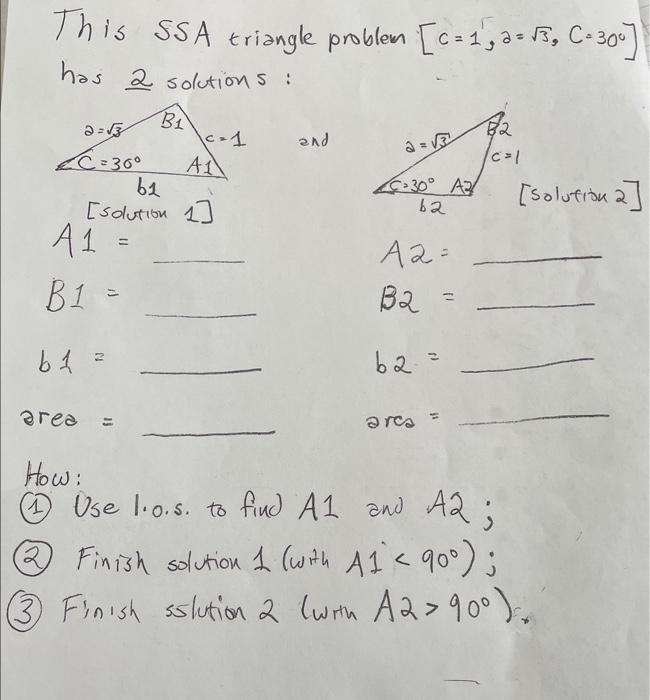 This SSA triangle problem [c=1, a=√3, C=30°]
has 2 solutions:
a=√3 B1 c=1 C=30° A1 b1
and
a=√3 B2 c=1 C=30° A2 b2
[solution 1]
[solution 2]
A1 = ____ A2 = ____
B1 = ____ B2 = ____
b1 = ____ b2 = ____
area = ____ area = ____
How:
① Use l.o.s. to find A1 and A2;
② Finish solution 1 (with A1 < 90°);
③ Finish sslution 2 (with A2 > 90°).